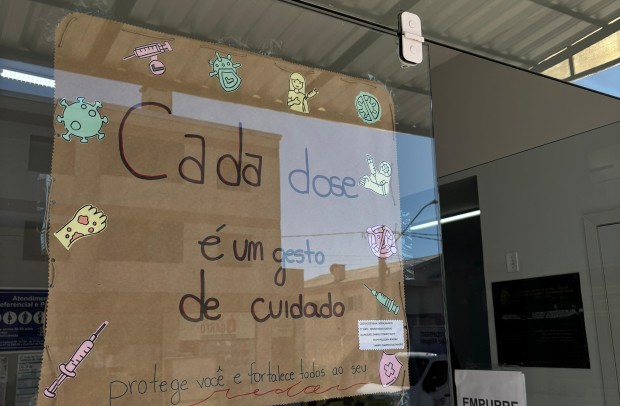 Cada dose
é um gesto
de cuidado
protege você e fortalece todos ao seu
redor
EMPURRE